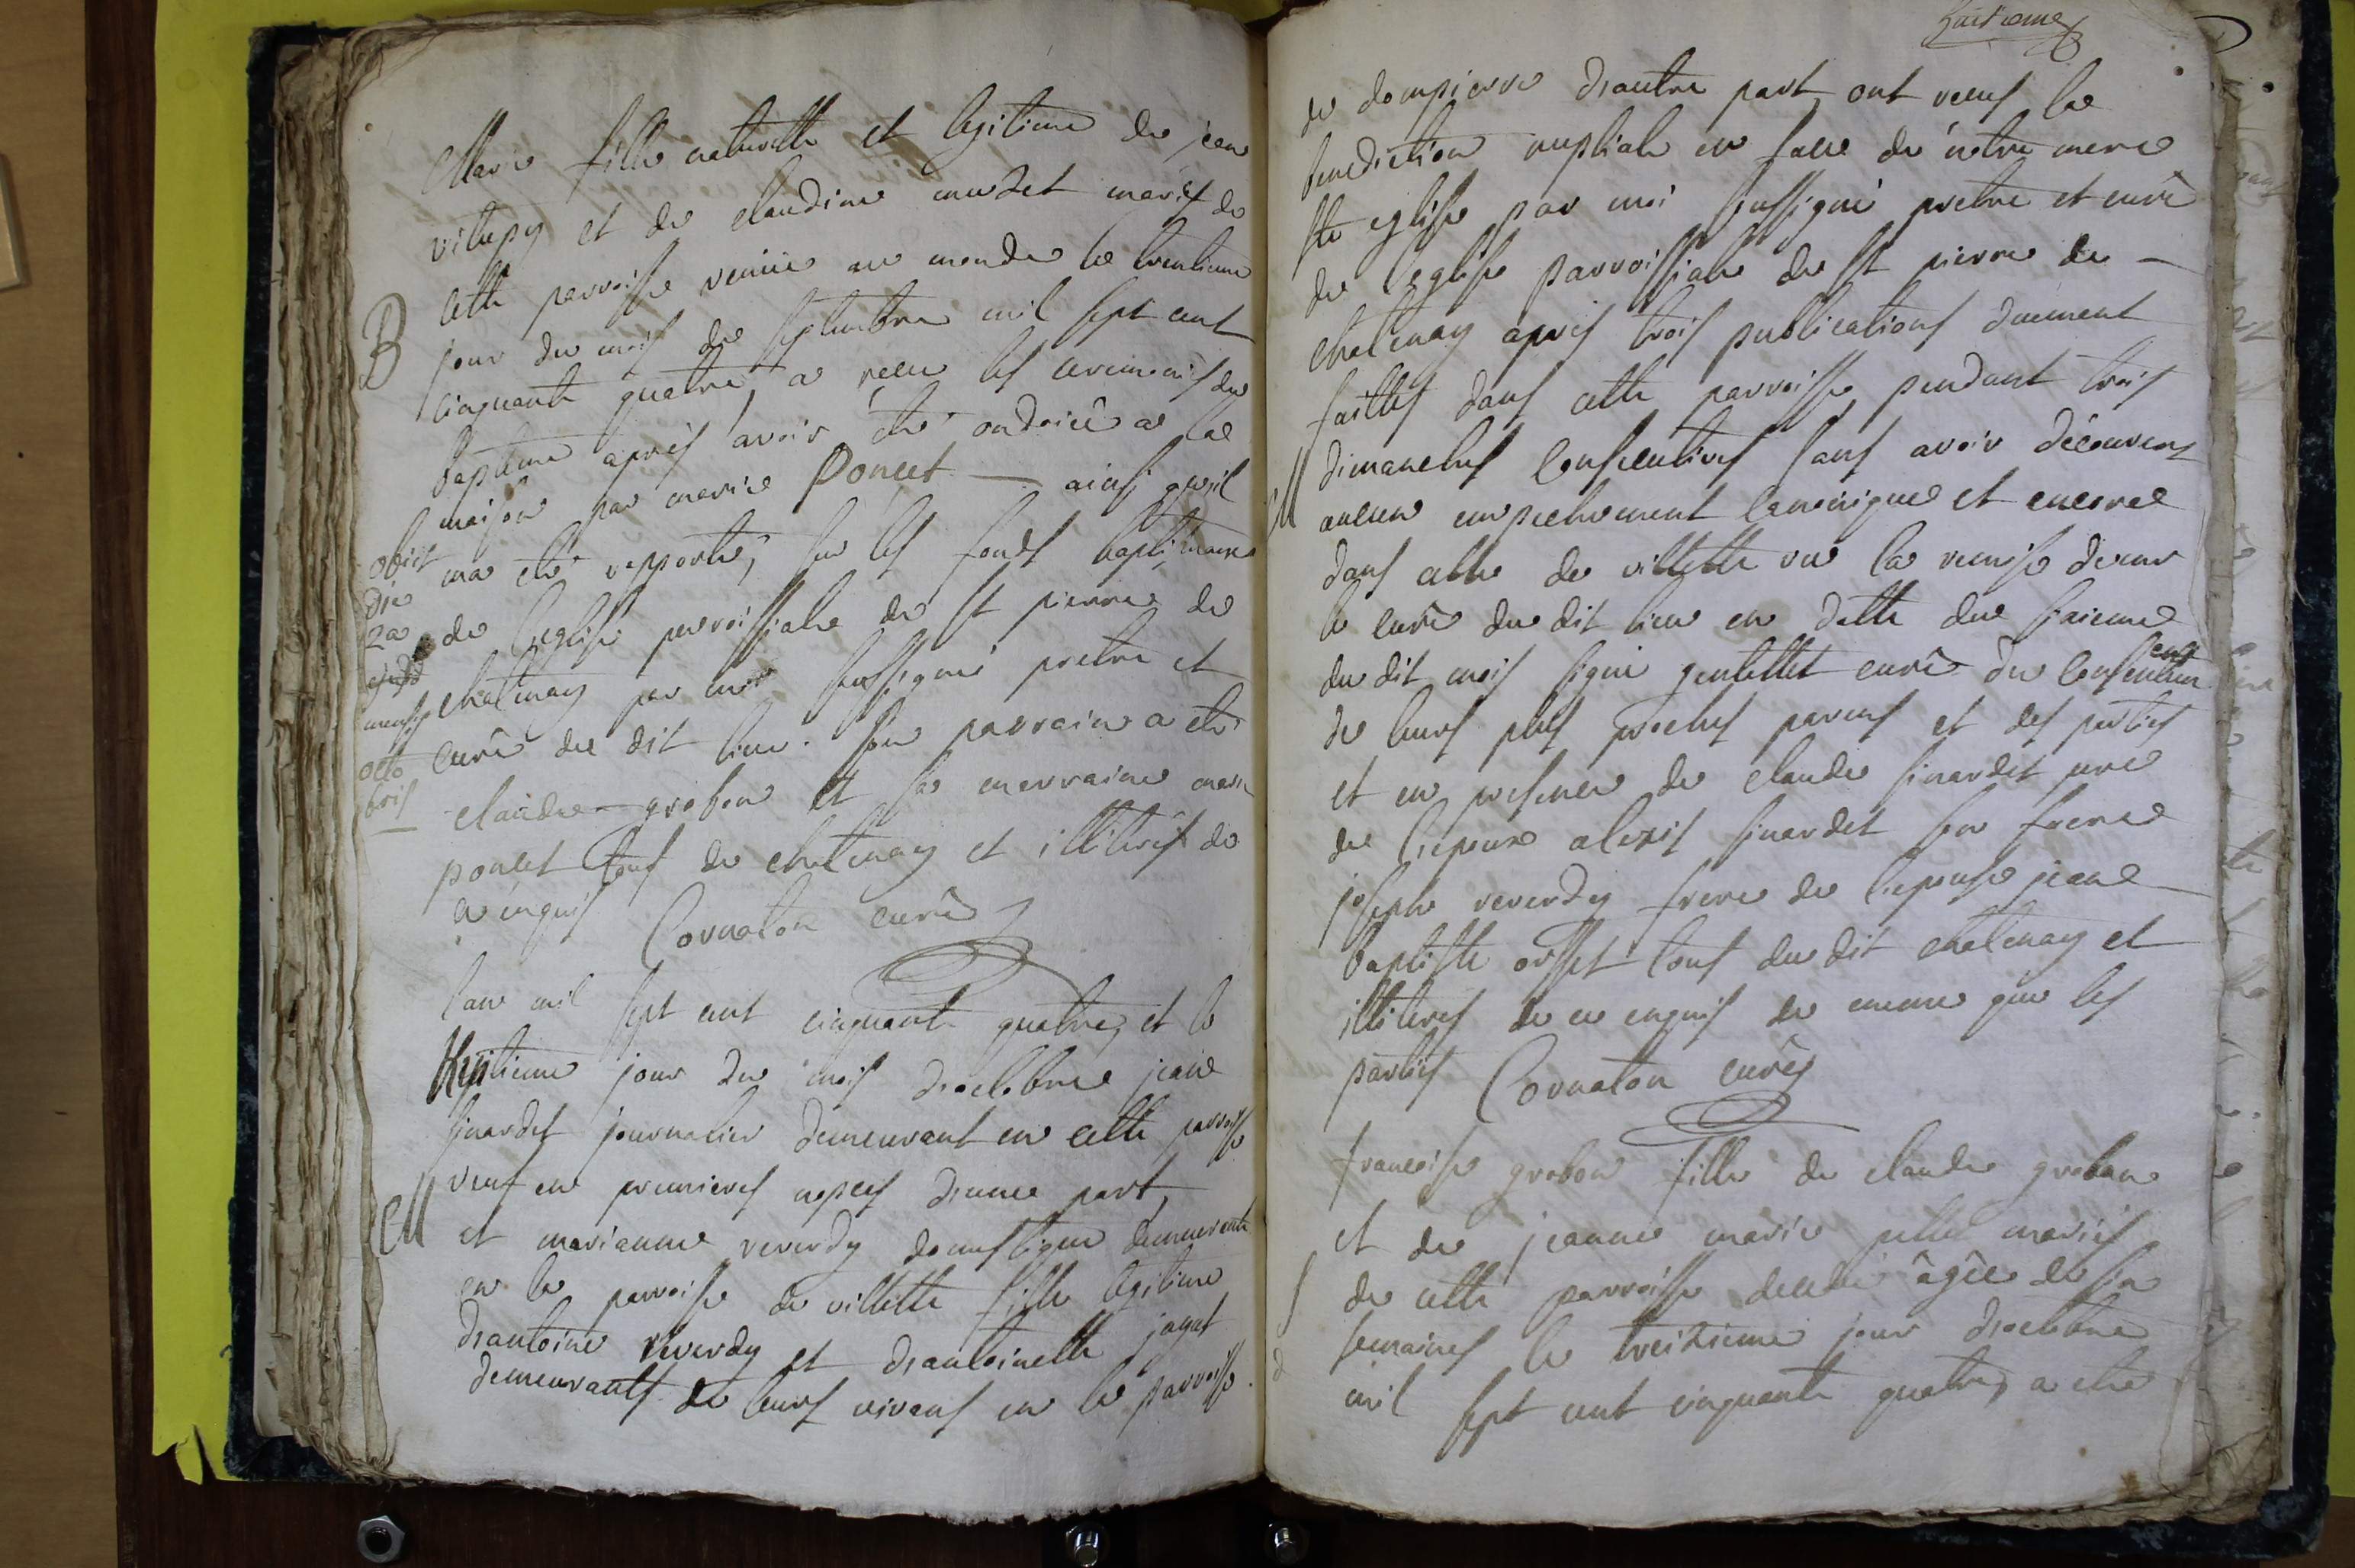 Marie fille naturelle et legitime de jean
vitupy et de claudine mudet mariés de
cette parroisse venüe au monde le trentieme
B
jour du mois de septembre mil sept cent
cinquante quatre, a recu les ceremonies du
baptême après avoir été ondoiée a la
maison par marie Poncet — ainsi qu'il
ma été rapporté, sur les fonds baptismaux
de l'eglise parroissiale de St pierre de
chatenay par moi soussigné pretre et
curé du dit lieu. son parrain a été
claude grobon et sa marraine marie
poncet tous de chatenay et illiterés de
ce enquis Cornaton curé
obiit
die
2a
ejusd
mensis
octo
bris
l'an mil sept cent cinquante quatre, et le
Huitieme jour du mois d'octobre jean
sinardet journalier demeurant en cette parroisse
veuf en premieres nopces d'unne part,
M
et marianne reverdy domestique demeurante
en la parroisse de villette fille legitime
d'antoine reverdy et d'antoinette jayat
demeurants de leurs vivans en la parroisse
huitieme
de dompierre d'autre part, ont receus la
benediction nuptiale en face de notre mere
Ste eglise par moi soussigné pretre et curé
de l'eglise parroissiale de St pierre de —
chatenay après trois publications duement
faittes dans cette parroisse pendant trois
dimanches consecutives sans avoir découvert
M
aucun empechement canonique et encore
dans celle de villette vu la remise de mr
le curé du dit lieu en datte du sixieme
du dit mois signé gentellet curé du consentement
de leurs plus proches parens et des parties
et en presence de claude sinardet pere
de l'epoux alexis sinardet son frere
joseph reverdy frere de l'epouse jean
baptiste orsset tous du dit chatenay et
illiterés de ce enquis de meme que les
parties Cornaton curé
francoise grobon fille de claude grobon
et de jeanne marie mariés
S
de cette parroisse decedée âgée de six
semaines le treizieme jour d'octobre
mil sept cent cinquante quatre, a été